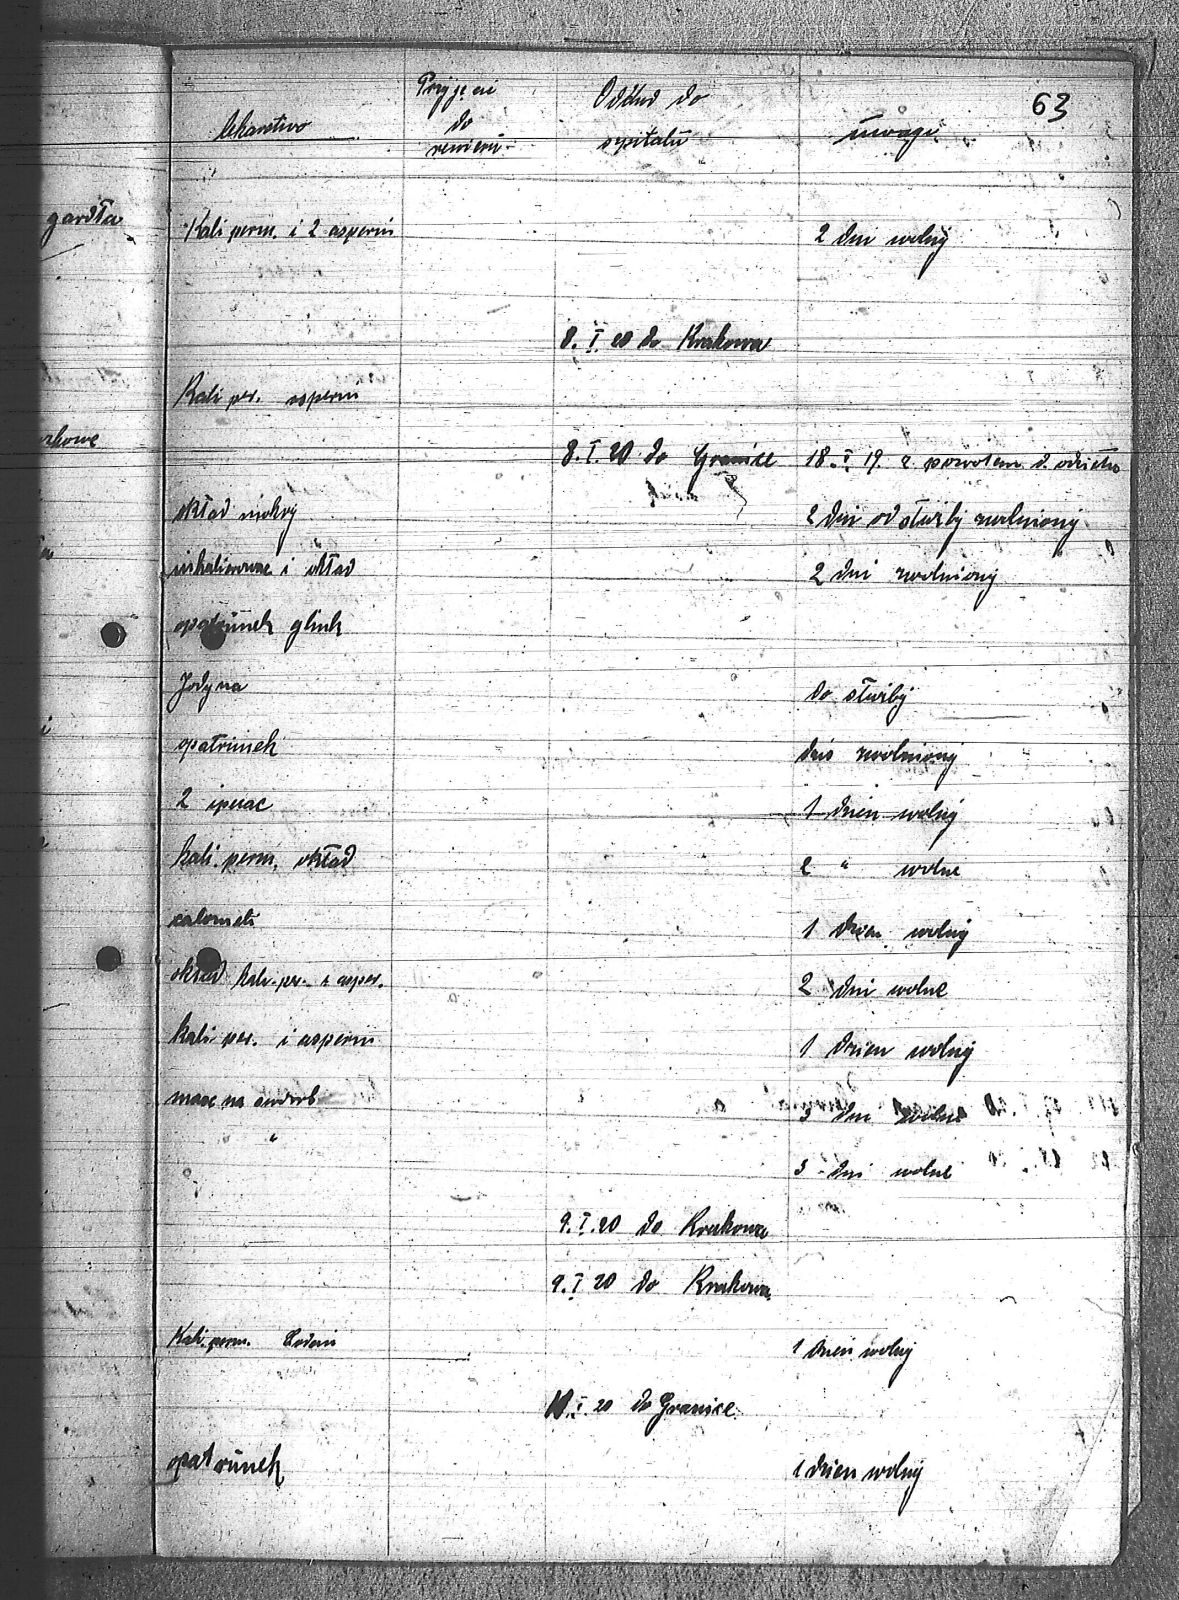 63
Przyjęci Oddad do
lekarstwo do uwagi
rewieru szpitalu
gardła
Kali perm. i 2 asperin 2 dni wolny
8. I. 20 do Krakowa
Kali per. asperin
8. I. 20 do Granice 18. I. 19. z
okład mokry 2 dni od służby zwolniony
i okład 2 dni zwolniony
opatrunek glink
Jodyna do służby
opatrunek dnis zwolniony
2 ipecac 1 dzien wolny
kali. perm. okład 2 " wolne
calomeli 1 dzien wolny
okład kali. per. i asper. 2 dni wolne
kali per. i asperin 1 dzien wolny
masc na swdrb 3 dni wolne
"
3 dni wolne
9. I. 20 do Krakowa
9. I 20 do Krakowa
Kali. perm. 1 dzien wolny
10. I. 20 do Granice
opatrunek 1 dzien wolny